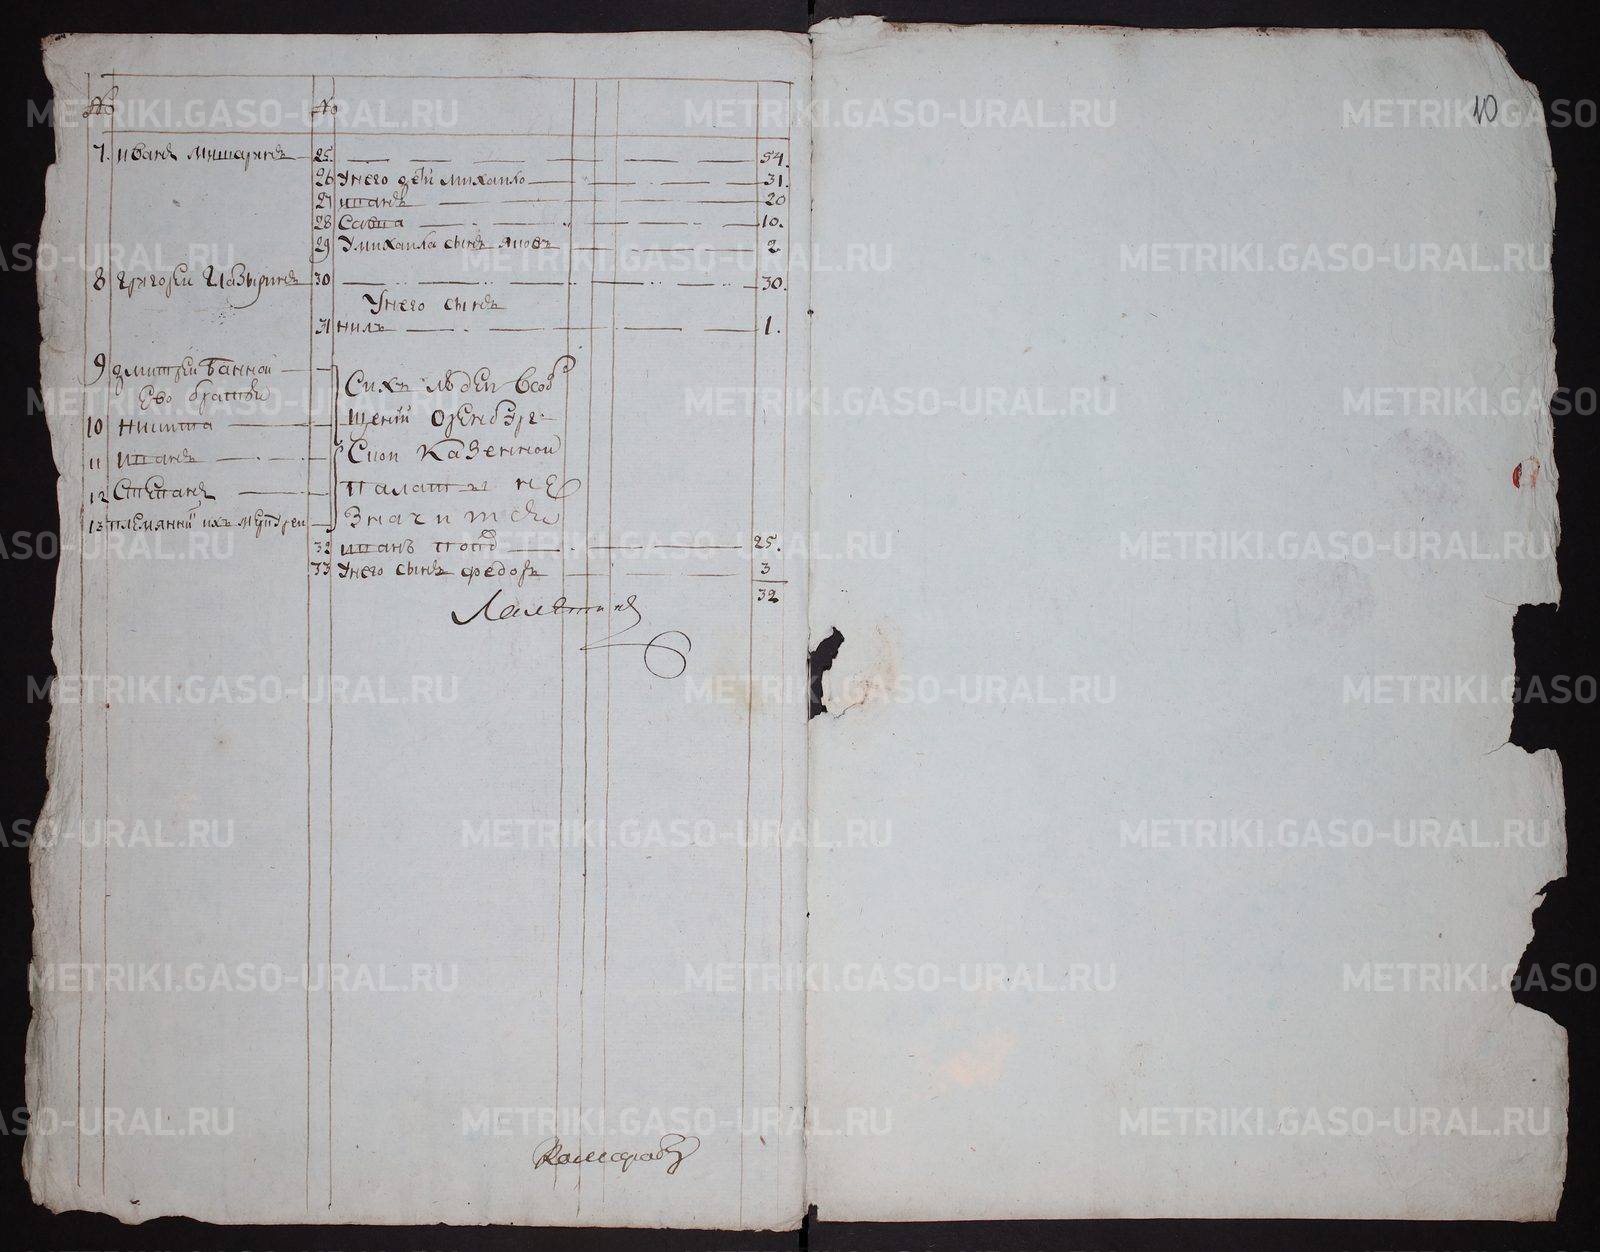 10
№ №
7. иванъ мишаринъ 25 54.
26 Унего дети михаило 31.
27 иванъ 20
28 Савва 10.
29 Умихаила сынъ яковъ 2
8 григореи 30 30.
Унего сынъ
31 нилъ 1.
9 дмитреи банной
Ево братья
10 никита
11 иванъ
12 Степанъ
13 племянни ихъ
Сихъ людеи всооб
щений Оренбург-
Скои Казенной
палаты не
значитсѧ
32 иванъ 25.
33 Унего сынъ федоръ 3
32
METRIKI.GASO-URAL.RU